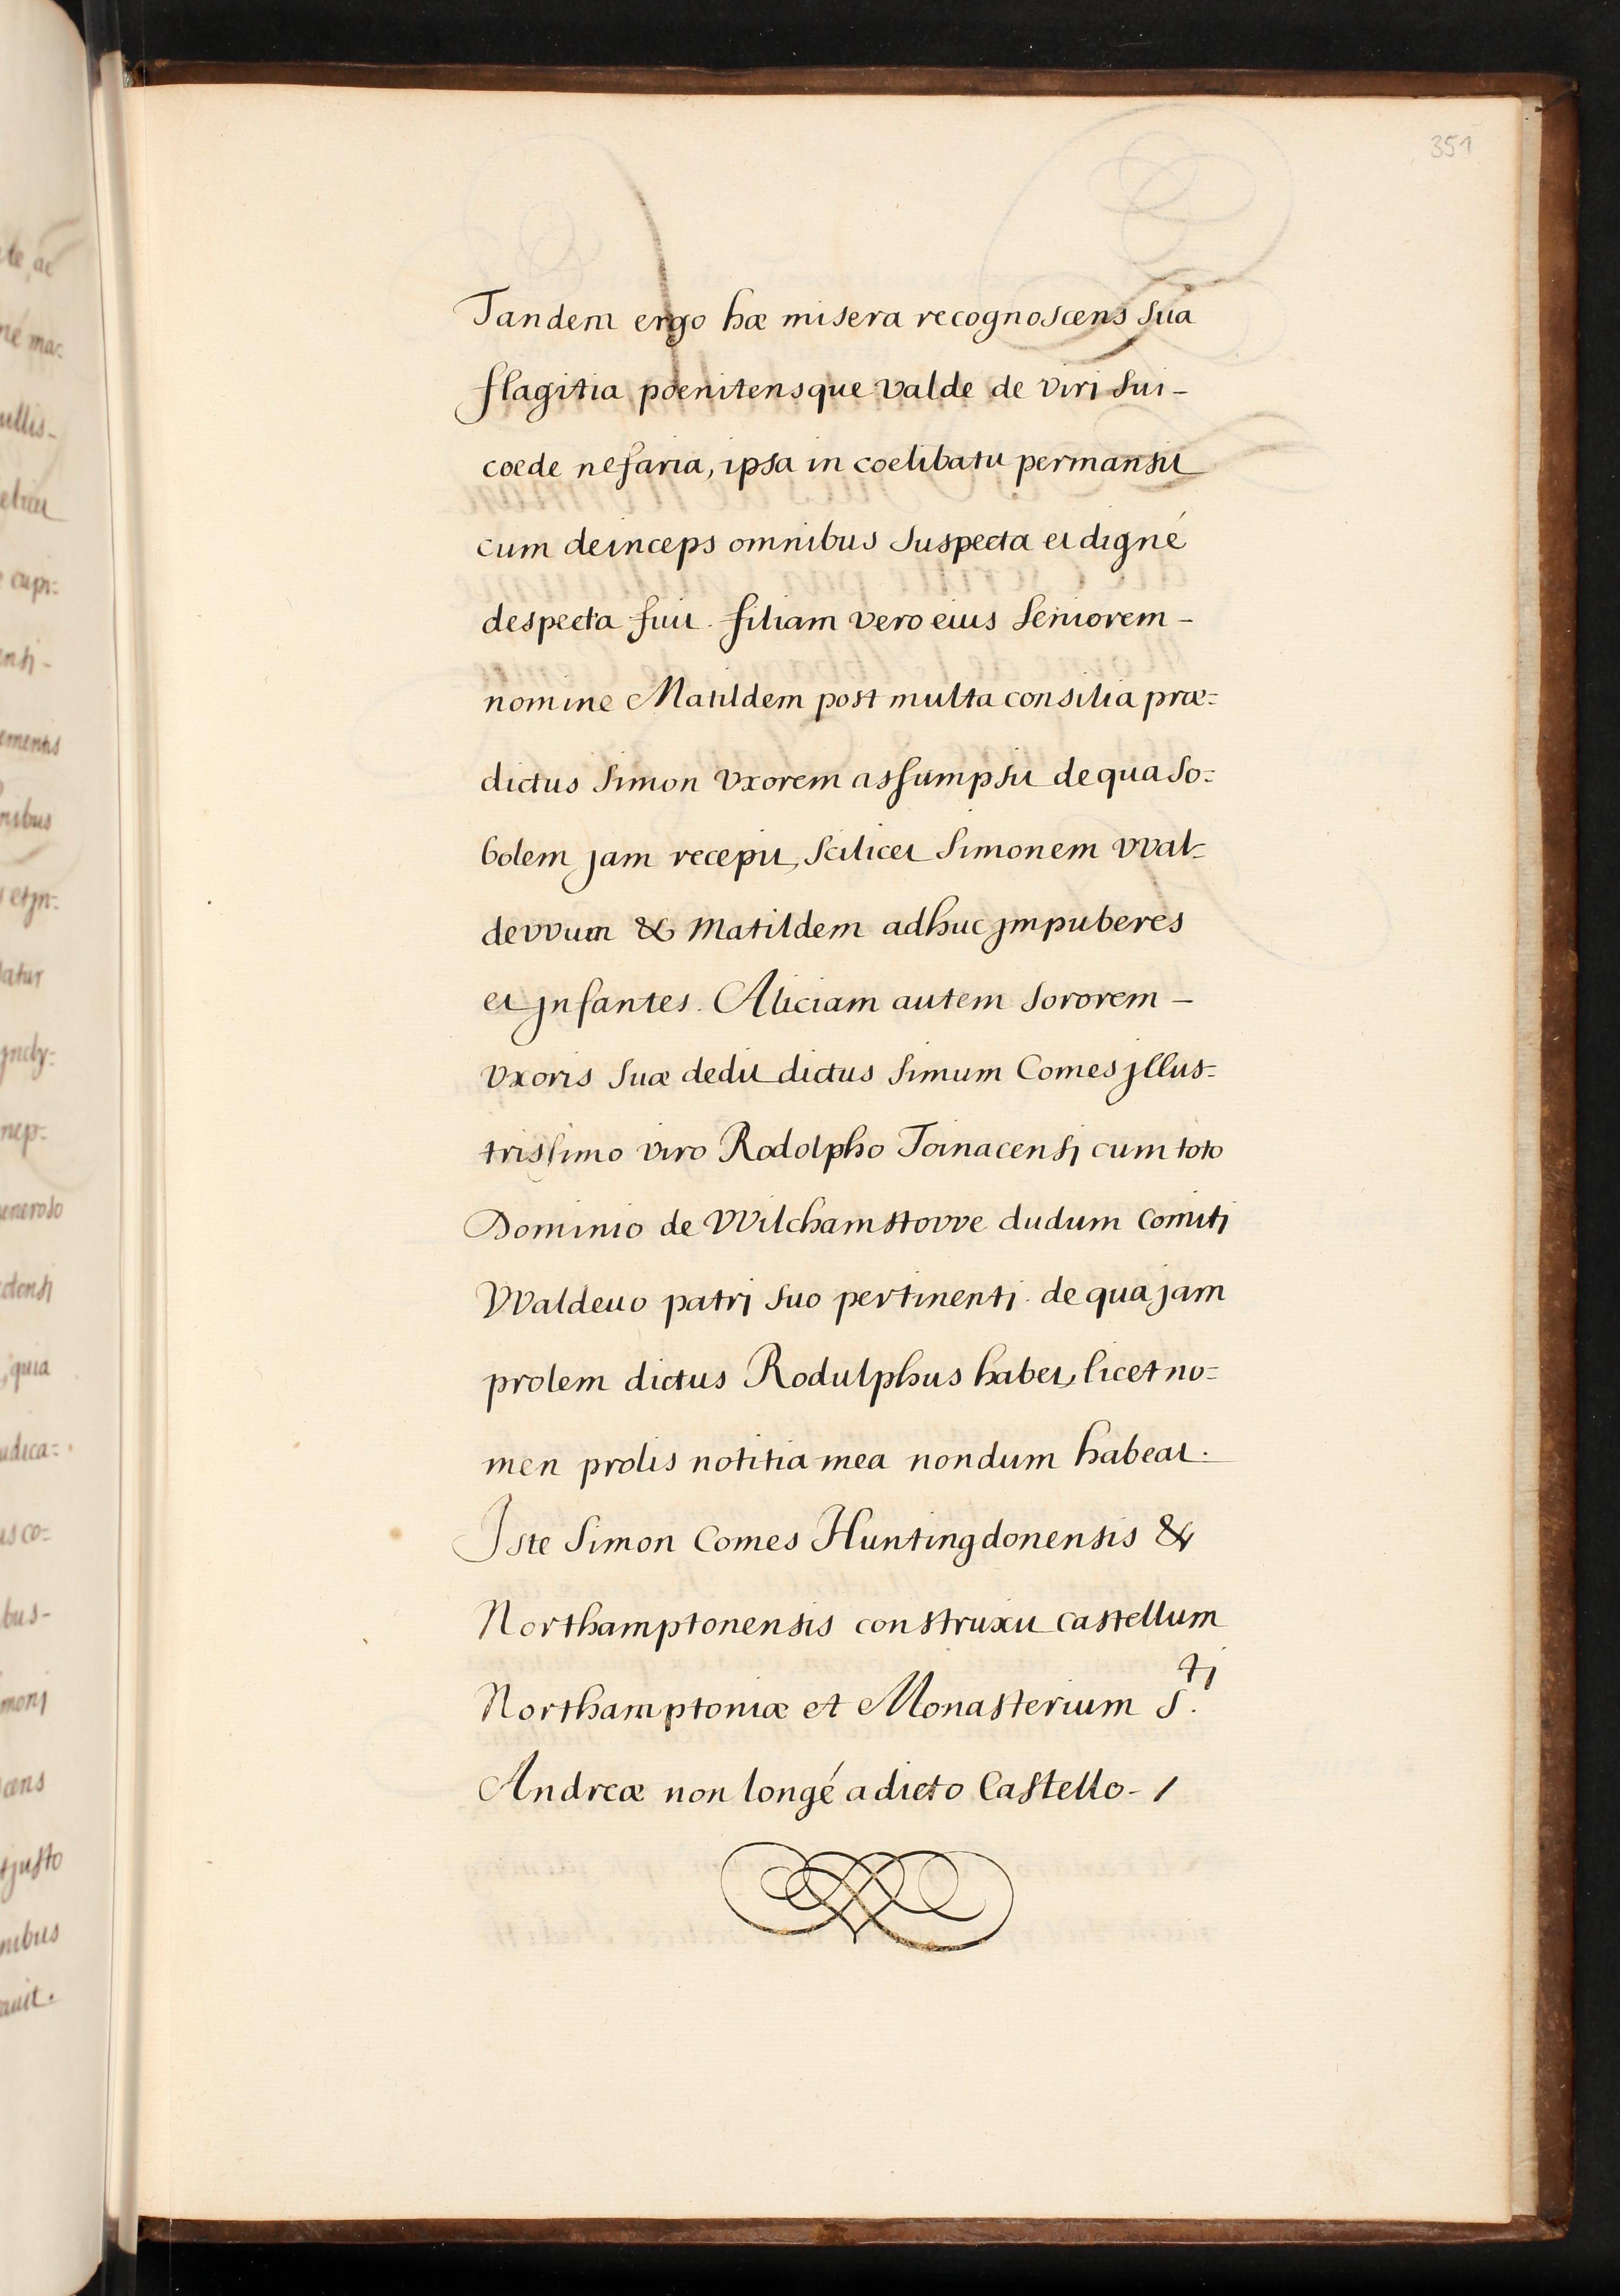 351
Tandem ergo hæ misera recognoscens sua
flagitia poenitensque valde de viri sui-
coede nefaria, ipsa in coelibatu permansit
cum deinceps omnibus suspecta et digné
despecta fuit. filiam vero eius seniorem-
nomine Matildem post multa consilia præ=
dictus Simon vxorem assumpsit de qua so=
bolem jam recepit, scilicet Simonem vval=
devvum & Matildem adhuc jmpuberes
et jnfantes. Aliciam autem sororem-
vxoris suæ dedit dictus Simum Comes jllus=
trissimo viro Rodolpho Toinacensj cum toto
Dominio de VVilchamstovve dudum comitj
VValdeuo patrj suo pertinentj. de qua jam
prolem dictus Rodulphus habet, licet no=
men prolis notitia mea nondum habeat.
Iste Simon Comes Huntingdonensis &
Northamptonensis construxit castellum
Northamptoniæ et Monasterium S.tj
Andreæ non longé a dicto Castello-/
te, ac
né mac=
ullis-
cupi=
ements
nibus
et jn=
latur
nep=
eneroso
quia
udica=
us co=
bus-
monj
cens
justo
nibus
auit.